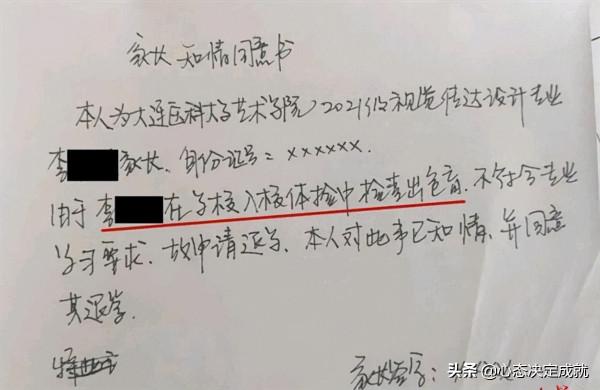 家长知情同意书
本人为大连医科大学艺术学院2021级视觉传达设计专业
李 家长,身份证号:××××××.
由于李 在学校入校体检中检查出色盲.不符合专业
学习要求.故申请退学.本人对此事已知情,并同意
其退学.
家长签字:
头条 @心态决定成就